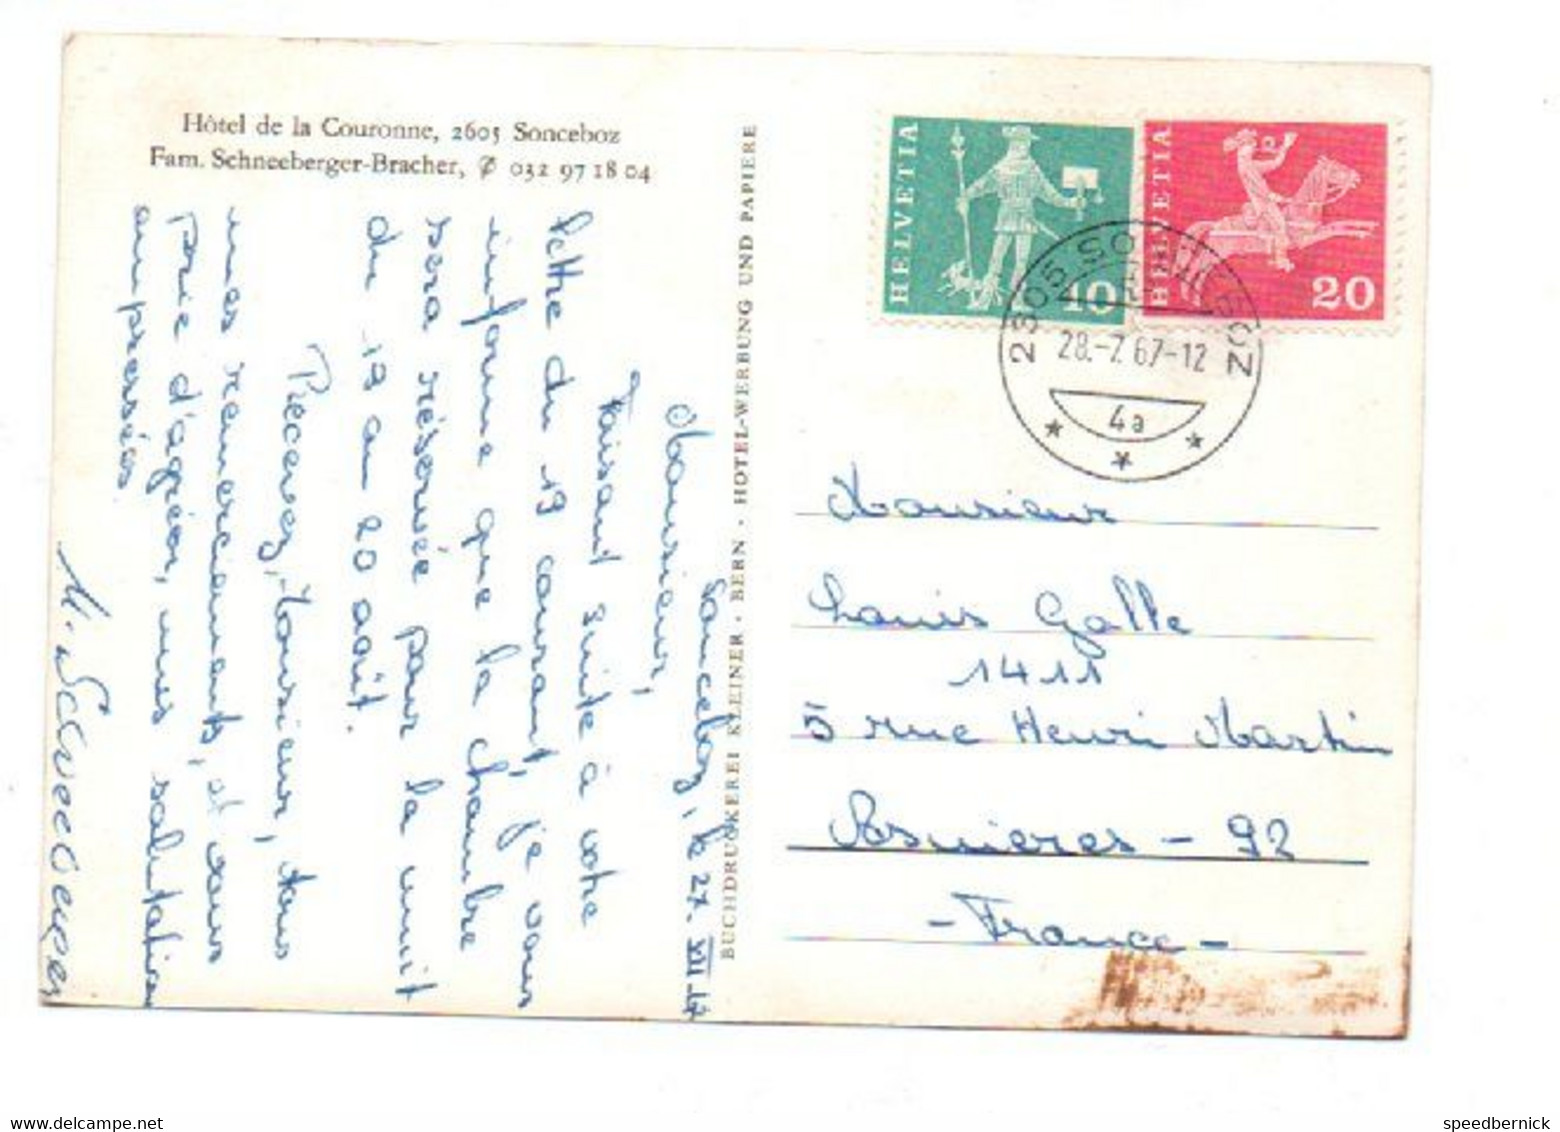 Hôtel de la Couronne, 2605 Sonceboz
Fam. Schneeberger-Bracher, ✆ 032 97 18 04
Sonceboz, le 27. VII 67
Monsieur,
Faisant suite à votre
lettre du 19 courant, je vous
informe que la chambre
sera réservée pour la nuit
du 19 au 20 août.
Recevez, Monsieur, tous
mes remerciements, et vous
prie d'agréer, mes salutations
empressées.
M. Schneeberger
BUCHDRUCKEREI KLEINER · BERN · HOTEL-WERBUNG UND PAPIERE
HELVETIA
10
HELVETIA
20
2605 SONCEBOZ
28.-7.67-12
4a
Monsieur
Louis Galle
1411
5 rue Henri Martin
Asnieres - 92
- France -
speedbernick